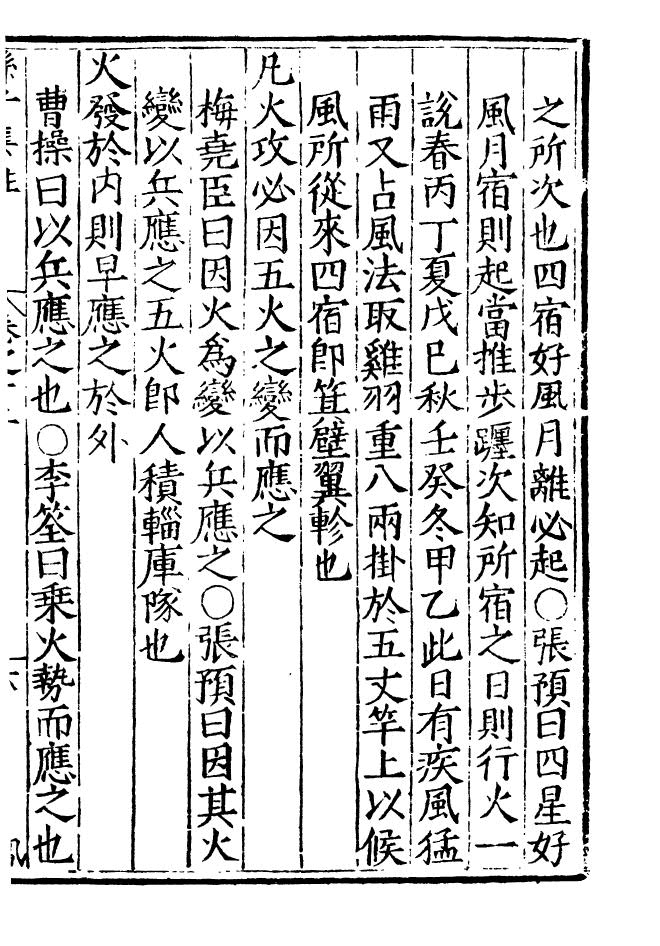 之所次也四宿好風月離必起○張預曰四星好
風月宿則起當推步躔次知所宿之日則行火一
說春丙丁夏戊巳秋壬癸冬甲乙此日有疾風猛
雨又占風法取雞羽重八兩掛於五丈竿上以候
風所從來四宿即箕壁翼軫也
凡火攻必因五火之變而應之
梅堯臣曰因火爲變以兵應之○張預曰因其火
變以兵應之五火即人積輜庫隊也
火發於内則早應之於外
曹操曰以兵應之也○李筌曰乗火勢而應之也